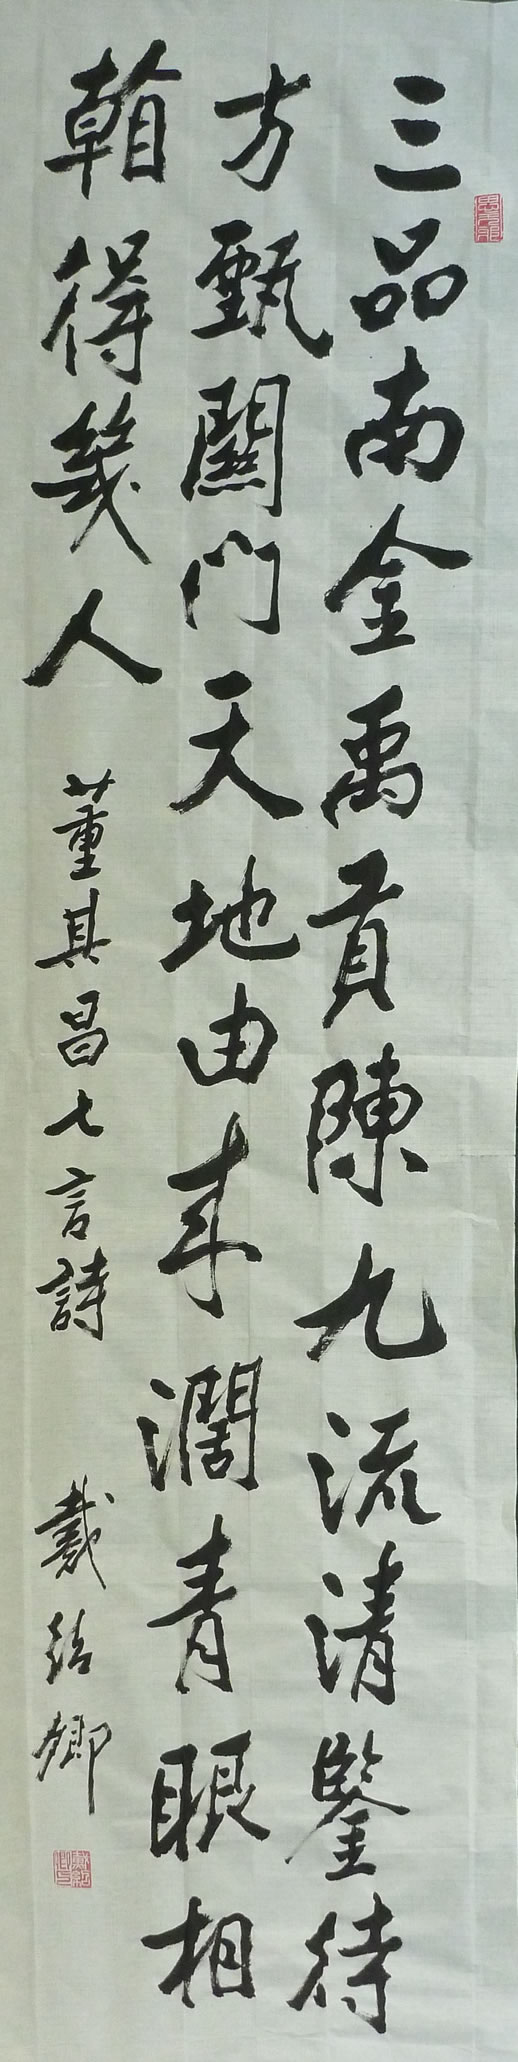 三品南金禹貢陳九流清鑒待
方甄門天地由来濶青眼相
看得幾人
董其昌七言詩
戴卿